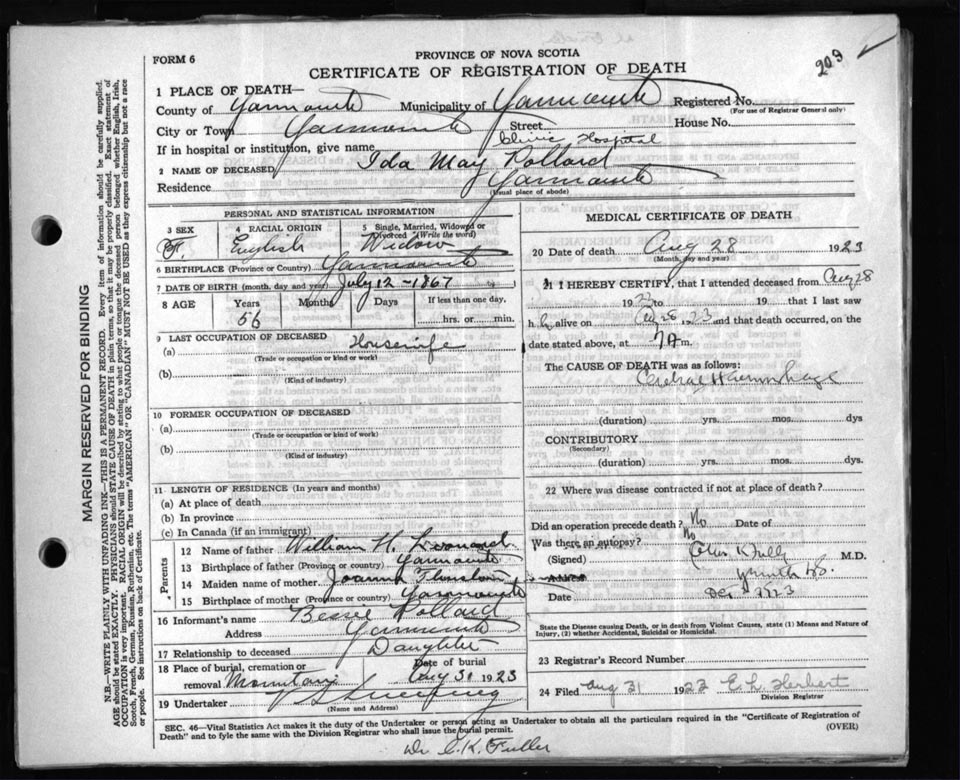 209
FORM 6
PROVINCE OF NOVA SCOTIA
CERTIFICATE OF REGISTRATION OF DEATH
1 PLACE OF DEATH—
County of Yarmouth Municipality of Yarmouth Registered No.
(For use of Registrar General only)
City or Town Yarmouth Street House No.
If in hospital or institution, give name Clinic Hospital
2 NAME OF DECEASED Ida May Pollard
Residence Yarmouth
(Usual place of abode)
PERSONAL AND STATISTICAL INFORMATION
3 SEX 4 RACIAL ORIGIN 5 Single, Married, Widowed or Divorced (Write the word)
F. English Widow
6 BIRTHPLACE (Province or Country) Yarmouth
7 DATE OF BIRTH (month, day and year) July 12 - 1867
8 AGE Years Months Days If less than one day,
56 hrs. or min.
9 LAST OCCUPATION OF DECEASED
(a) Housewife
(Trade or occupation or kind of work)
(b)
(Kind of industry)
10 FORMER OCCUPATION OF DECEASED
(a)
(Trade or occupation or kind of work)
(b)
(Kind of industry)
11 LENGTH OF RESIDENCE (In years and months)
(a) At place of death
(b) In province
(c) In Canada (if an immigrant)
Parents
12 Name of father William H.
13 Birthplace of father (Province or country) Yarmouth
14 Maiden name of mother Joanna
15 Birthplace of mother (Province or country) Yarmouth
16 Informant's name Bessie Pollard
Address Yarmouth
17 Relationship to deceased Daughter
18 Place of burial, cremation or removal Mountain Date of burial Aug 30 1923
19 Undertaker V S Sweeney
(Name and Address)
MEDICAL CERTIFICATE OF DEATH
20 Date of death Aug 28 1923
(Month, day and year)
21 I HEREBY CERTIFY, that I attended deceased from Aug 28
1923 to 19 that I last saw
h alive on Aug 28, 23 and that death occurred, on the
date stated above, at 7 A m.
The CAUSE OF DEATH was as follows:
Cerebral Haemorrhage
(duration) yrs. mos. dys
CONTRIBUTORY
(Secondary)
(duration) yrs. mos. dys.
22 Where was disease contracted if not at place of death?
Did an operation precede death? No Date of
Was there an autopsy? No
(Signed) M.D.
Date
State the Disease causing Death, or in death from Violent Causes, state (1) Means and Nature of
Injury, (2) whether Accidental, Suicidal or Homicidal.
23 Registrar's Record Number
24 Filed Aug 31 1923 E L Herbert
Division Registrar
SEC. 46—Vital Statistics Act makes it the duty of the Undertaker or person acting as Undertaker to obtain all the particulars required in the "Certificate of Registration of
Death" and to fyle the same with the Division Registrar who shall issue the burial permit. (OVER)
Dr C. K. Fuller
MARGIN RESERVED FOR BINDING
N.B.—WRITE PLAINLY WITH UNFADING INK—THIS IS A PERMANENT RECORD. Every item of information should be carefully supplied.
AGE should be stated EXACTLY. PHYSICIANS should STATE CAUSE OF DEATH in plain terms, so that it may be properly classified. Exact statement of
OCCUPATION is very important. RACIAL ORIGIN will be described by stating to what people or tongue the deceased person belonged whether English, Irish,
Scotch, French, German, Russian, Ruthenian, etc. The terms "AMERICAN" OR "CANADIAN" MUST NOT BE USED as they express citizenship but not a race
or people. See instructions on back of Certificate.